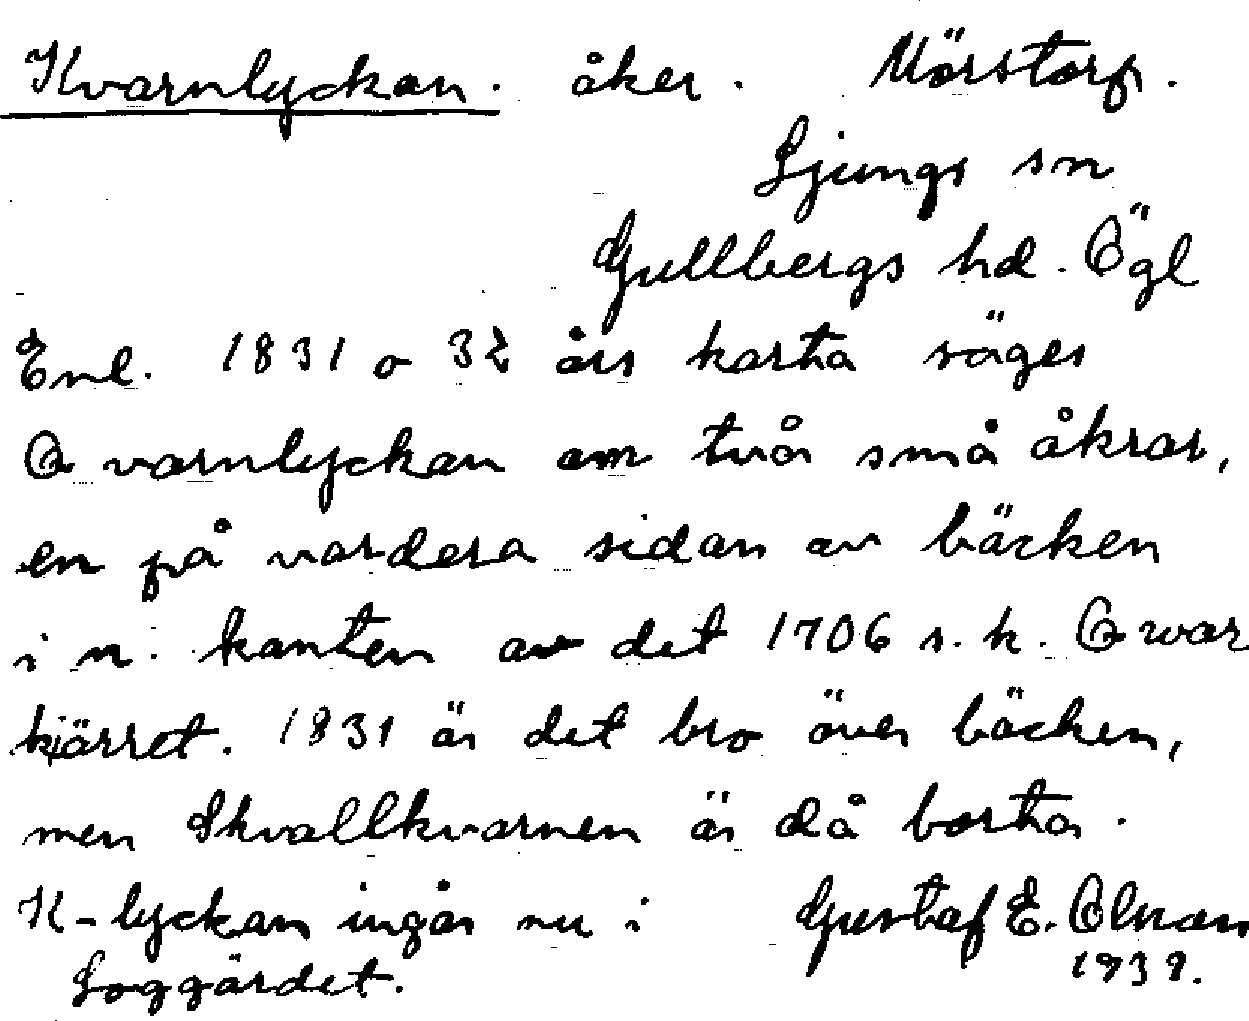 Kvarnlyckan. åker. Mörstorp.
Ljungs sn
Gullbergs hd. Ögl
Enl. 1831 o 32 års karta säges
Qvarnlyckan om två små åkrar,
en på vardera sidan av bäcken
i n. kanten av det 1706 s.k. Qwar
kjärret. 1831 är det bro över bäcken,
men Skvallkvarnen är då borta.
K-lyckan ingår nu i Gustaf E. Olson
Loggärdet. 1939.